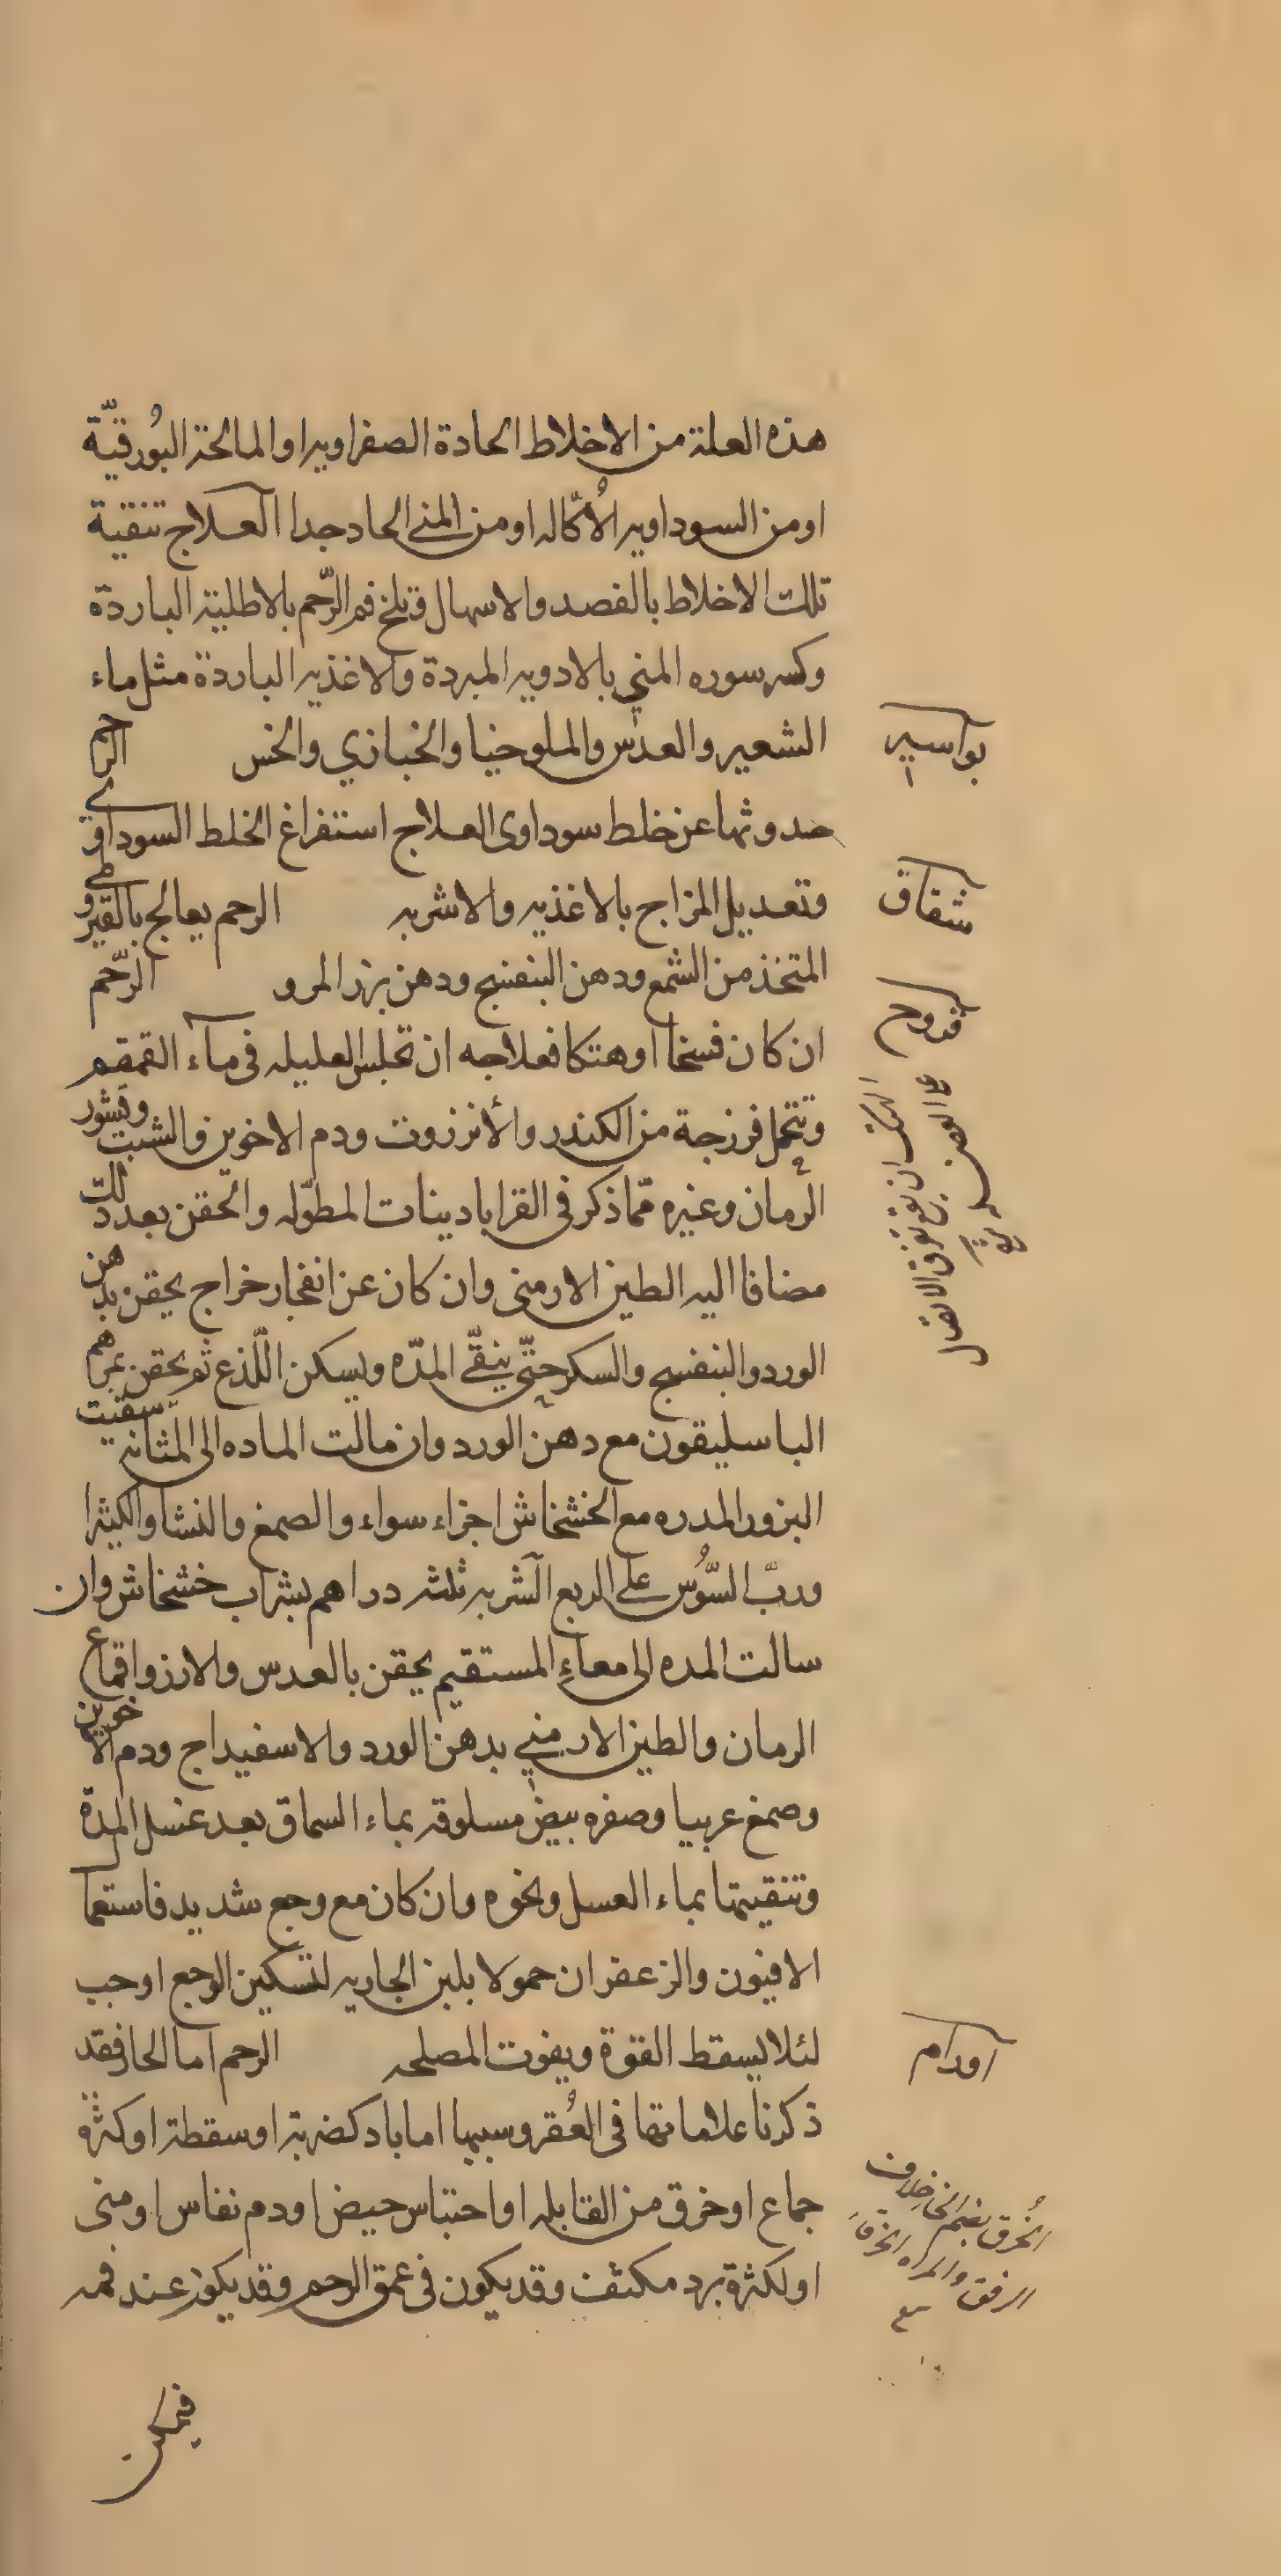 هذه العلة من الاخلاط الحادة الصفراويه او المالحة البُورقيّة
او من السوداويه الأكّاله او من المني الحاد جدا العلاج تنقية
تلك الاخلاط بالفصد والاسهال وتلخ فم الرّحم بالاطلية الباردة
وكسر سوره المني بالادويه المبردة والاغذيه الباردة مثل ماء
الشعير والعدس والملوخيا والخبازي والخس
بواسير
الرحم
حدوثها عن خلط سوداوى العلاج استفراغ الخلط السوداوي
وتعديل المزاج بالاغذيه والاشربه
شقاق
الرحم يعالج بالقيروطي
المتخذ من الشمع ودهن البنفسج ودهن بزر المرو
قروح
الرّحم
ان كان فسخا او هتكا فعلاجه ان تجلس العليله في ماء القمقم
وتتحمل فرزجة من الكندر والأنزروت ودم الاخوين والشبت وقشور
الرمان وغيره ممّا ذكر في القراباديناتا لمطوّله والحقن بعد ذلك
مضافا اليه الطين الارمنى وان كان عن انفجار خراج يحقن بدهن
الورد والبنفسج والسكر حتّى ينقّي المدّه ويسكن اللّذع ثم يحقن بمراهم
الباسليقون مع دهن الورد وان مالت الماده الى المثانه سقيت
البزور المدره مع الخشخاش اجزاء سواء والصمغ والنشا والكيثرا
وربّ السُّوس على الربع الشربه ثلثه دراهم بشراب خشخاش وان
سالت المده الى معاء المستقيم يحقن بالعدس والارز واقماع
الرمان والطين الارمني بدهن الورد والاسفيداج ودم الاخوين
وصمغ عربيا وصفره بيض مسلوقه بماء السماق بعد غسل المدة
وتنقيتها بماء العسل ونحوه وان كان مع وجع شديد فاستعمال
الافيون والزعفران حمولا بلبن الجاريه لتسكين الوجع اوجب
لئلا يسقط القوة ويفوت المصلحه
اورام
الرحم اما الحار فقد
ذكرنا علاماتها فى العُقر وسببها اما باد كضربة او سقطة او كثرة
جماع او خرق من القابله او احتباس حيض او دم نفاس او منى
او لكثرة برد مكثف وقد يكون فى عمق الرحم وقد يكون عند فمه
الخُرق بضم الخا خلاف
الرفق والمراه الخرقاء
فيمكن